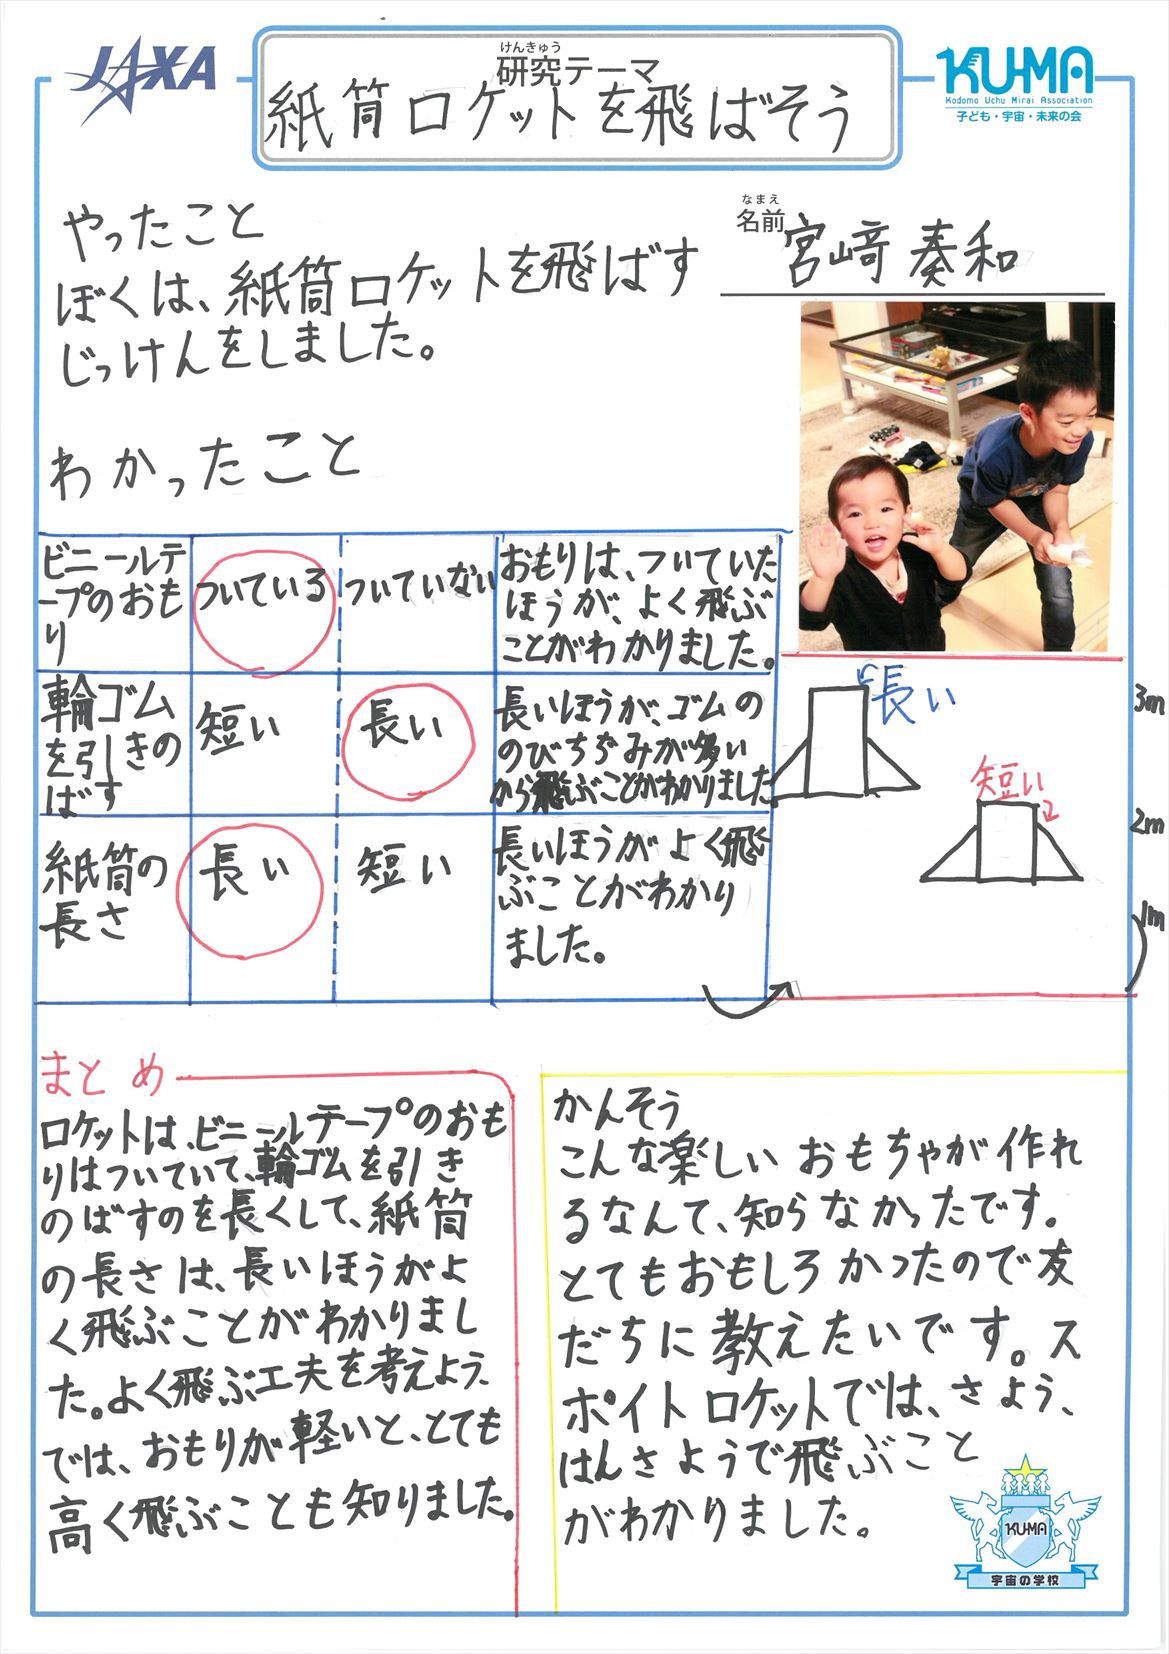 JAXA
けんきゅう
研究テーマ
紙筒ロケットを飛ばそう
KU-MA
Kodomo Uchu Mirai Association
子ども・宇宙・未来の会
なまえ
名前
宮﨑 奏和
やったこと
ぼくは、紙筒ロケットを飛ばす
じっけんをしました。
わかったこと
ビニールテ
ープのおも
り
ついている
ついていない
おもりは、ついていた
ほうが、よく飛ぶ
ことがわかりました。
輪ゴム
を引きの
ばす
短い
長い
長いほうが、ゴムの
のびちぢみが多い
から飛ぶことがわかりました
紙筒の
長さ
長い
短い
長いほうがよく飛
ぶことがわかり
ました。
長い
短い
3m
2m
1m
まとめ
ロケットは、ビニールテープのおも
りはついていて、輪ゴムを引き
のばすのを長くして、紙筒
の長さは、長いほうがよ
く飛ぶことがわかりまし
た。よく飛ぶ工夫を考えよう、
では、おもりが軽いと、とても
高く飛ぶことも知りました。
かんそう
こんな楽しいおもちゃが作れ
るなんて、知らなかったです。
とてもおもしろかったので友
だちに教えたいです。ス
ポイトロケットでは、さよう、
はんさようで飛ぶこと
がわかりました。
KU-MA
宇宙の学校